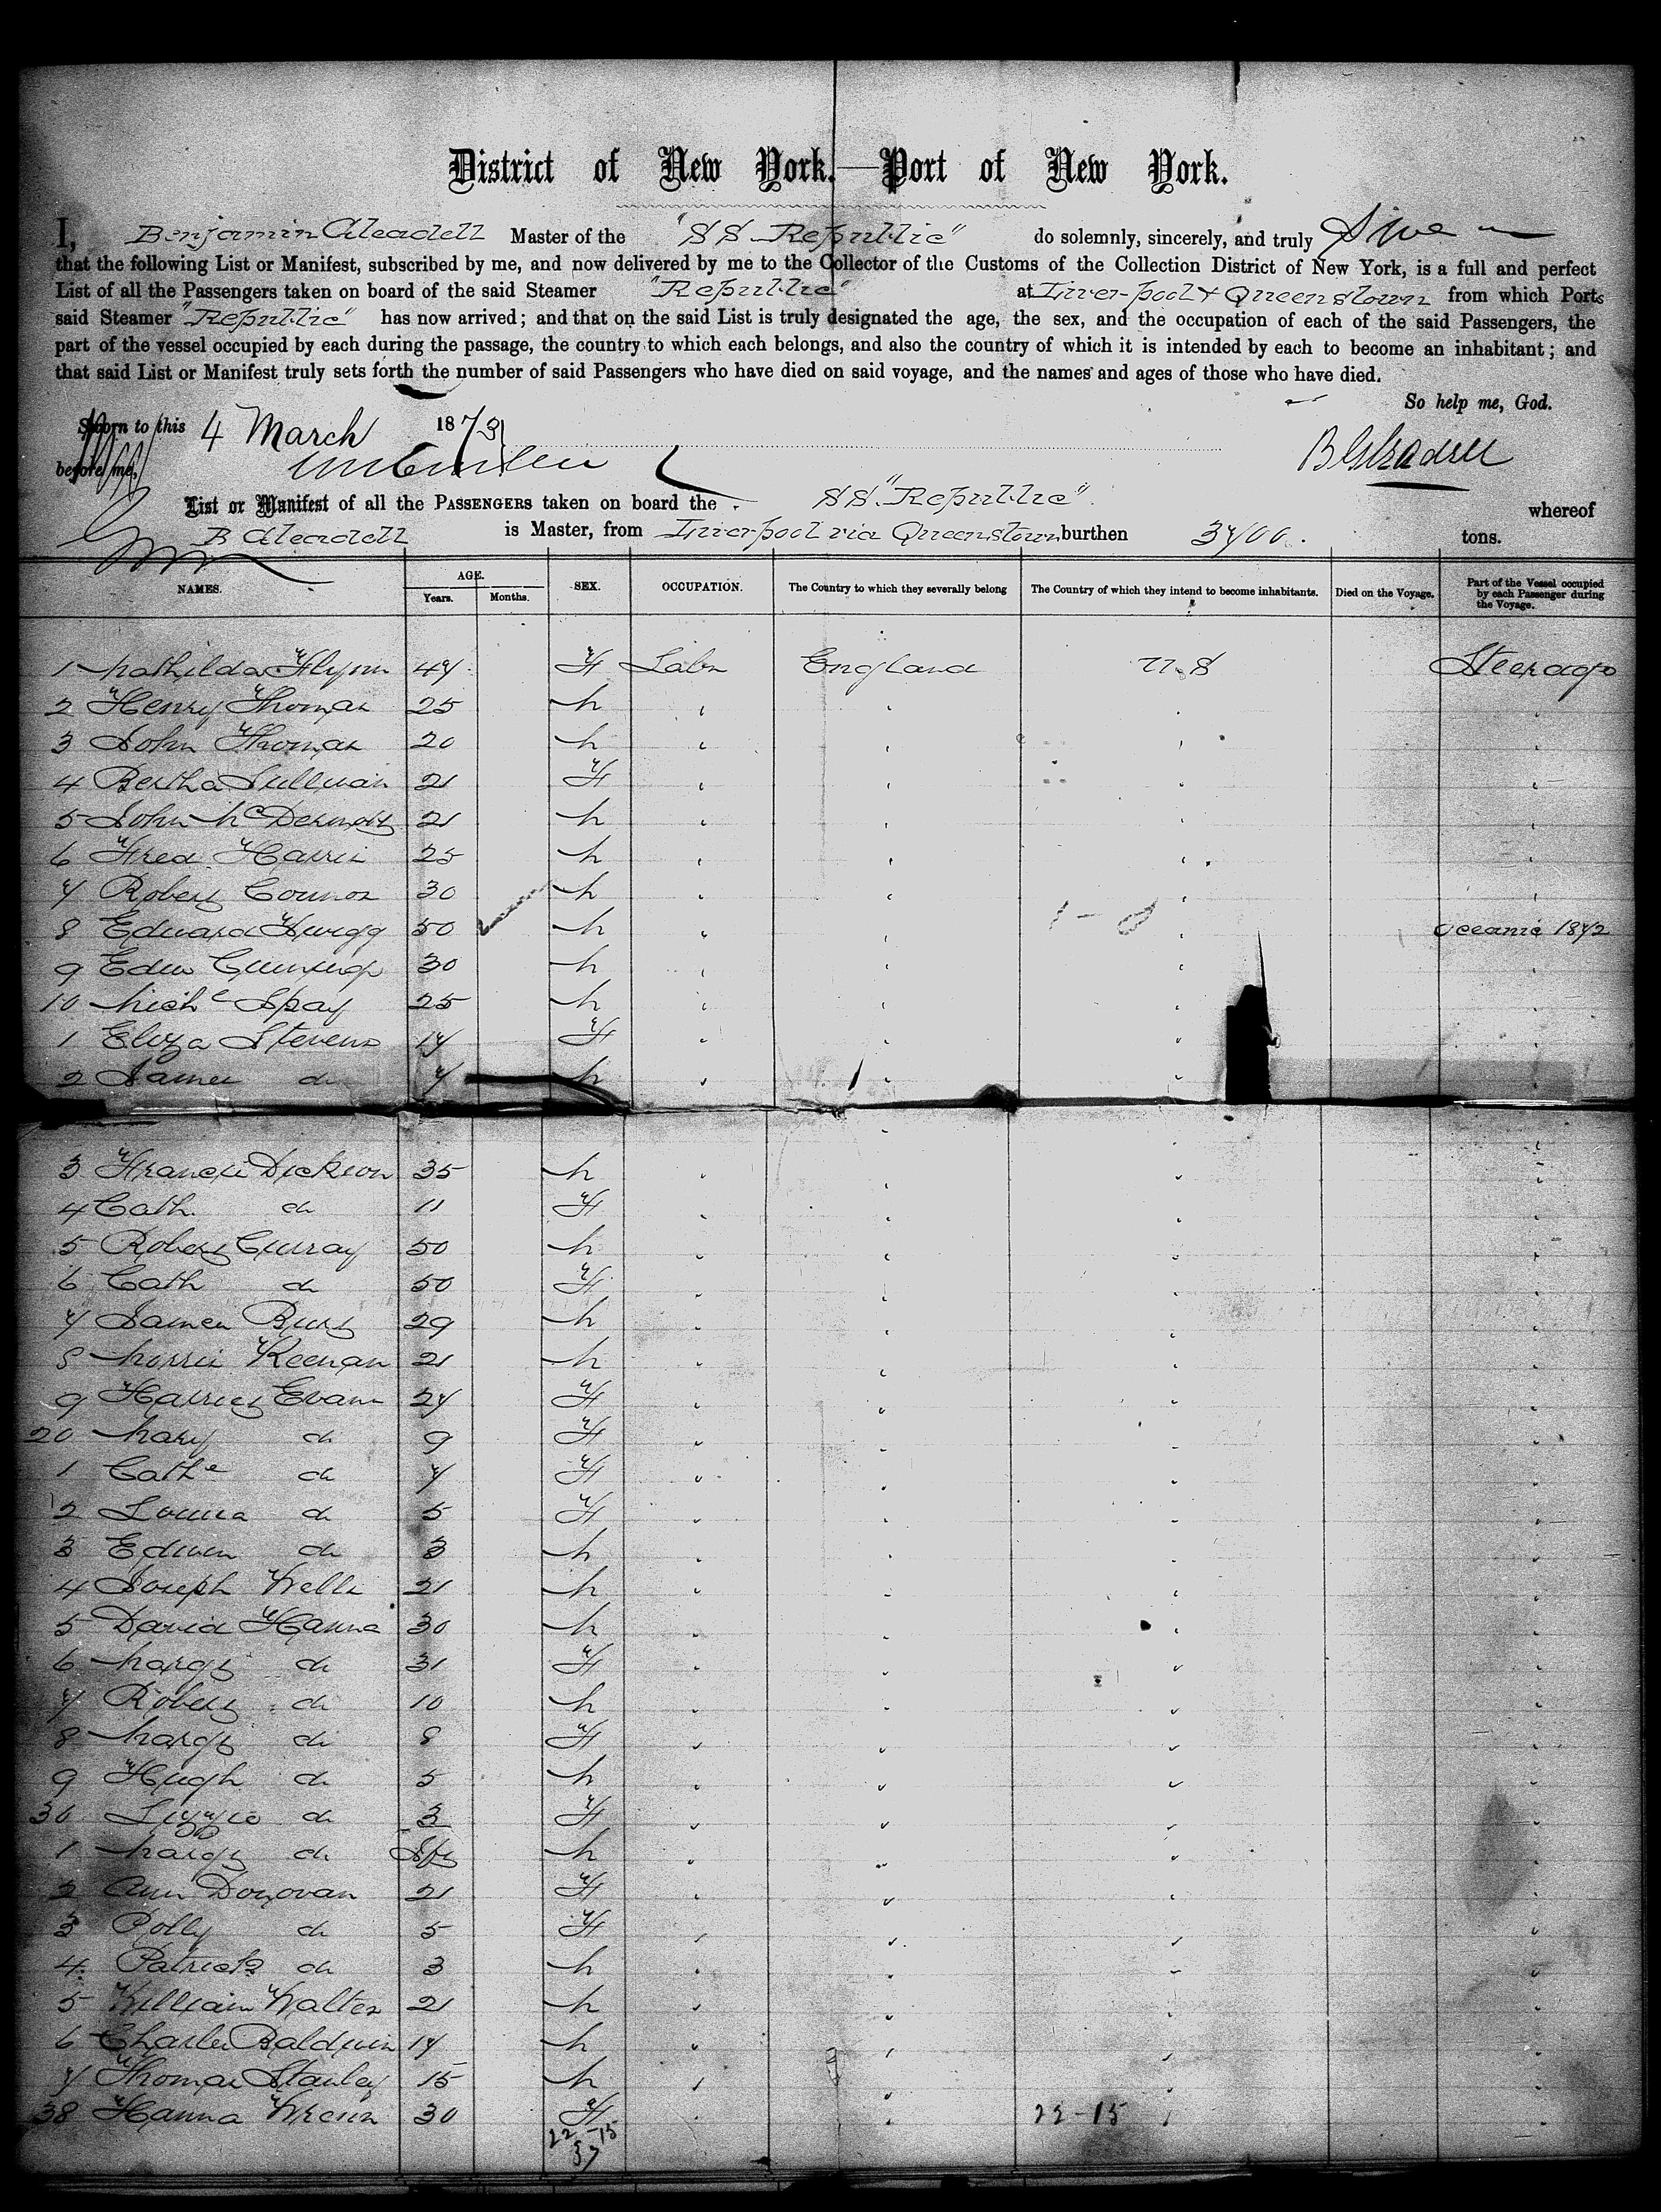 District of New York.—Port of New York.
I, Benjamin Gleadell Master of the "SS Republic" do solemnly, sincerely, and truly Swear
that the following List or Manifest, subscribed by me, and now delivered by me to the Collector of the Customs of the Collection District of New York, is a full and perfect
List of all the Passengers taken on board of the said Steamer "Republic" at Liverpool & Queenstown from which Ports
said Steamer "Republic" has now arrived; and that on the said List is truly designated the age, the sex, and the occupation of each of the said Passengers, the
part of the vessel occupied by each during the passage, the country to which each belongs, and also the country of which it is intended by each to become an inhabitant; and
that said List or Manifest truly sets forth the number of said Passengers who have died on said voyage, and the names and ages of those who have died.
So help me, God.
Sworn to this 4 March 1873
before me, B Gleadell
List or Manifest of all the PASSENGERS taken on board the SS "Republic" whereof
B Gleadell is Master, from Liverpool via Queenstown burthen 3700. tons.
NAMES. AGE. Years. Months. SEX. OCCUPATION. The Country to which they severally belong The Country of which they intend to become inhabitants. Died on the Voyage. Part of the Vessel occupied by each Passenger during the Voyage.
1 Mathilda Flynn 47 F Labr England U.S Steerage
2 Henry Thomas 25 M
3 John Thomas 20 M
4 Bertha Sullivan 21 F
5 John McDermott 21 M
6 Fred Harris 25 M
7 Robert Connor 30 M
8 Edward 50 M Oceanic 1872
9 30 M
10 Miche Spay 25 M
1 Eliza Stevens 17 F
2 James do 7 M
3 Francis Dickson 35 M
4 Cath. do 11 F
5 Robert Curray 50 M
6 Cath do 50 F
7 James Burt 29 M
8 Morris Keenan 21 M
9 Harriet Evans 27 F
20 Mary do 9 F
1 Cathe do 7 F
2 Louisa do 5 F
3 Edwin do 3 M
4 Joseph Wells 21 M
5 David Hanna 30 M
6 Margt do 31 F
7 Robert do 10 M
8 Margt do 8 F
9 Hugh do 5 M
30 Lizzie do 3 F
1 Margt do M
2 Ann Donovan 21 F
3 Polly do 5 F
4 Patrick do 3 M
5 William Walter 21 M
6 Charles Baldwin 17 M
7 Thomas Stanley 15 M
38 Hanna Wrenn 30 F 22-15
22-15
37